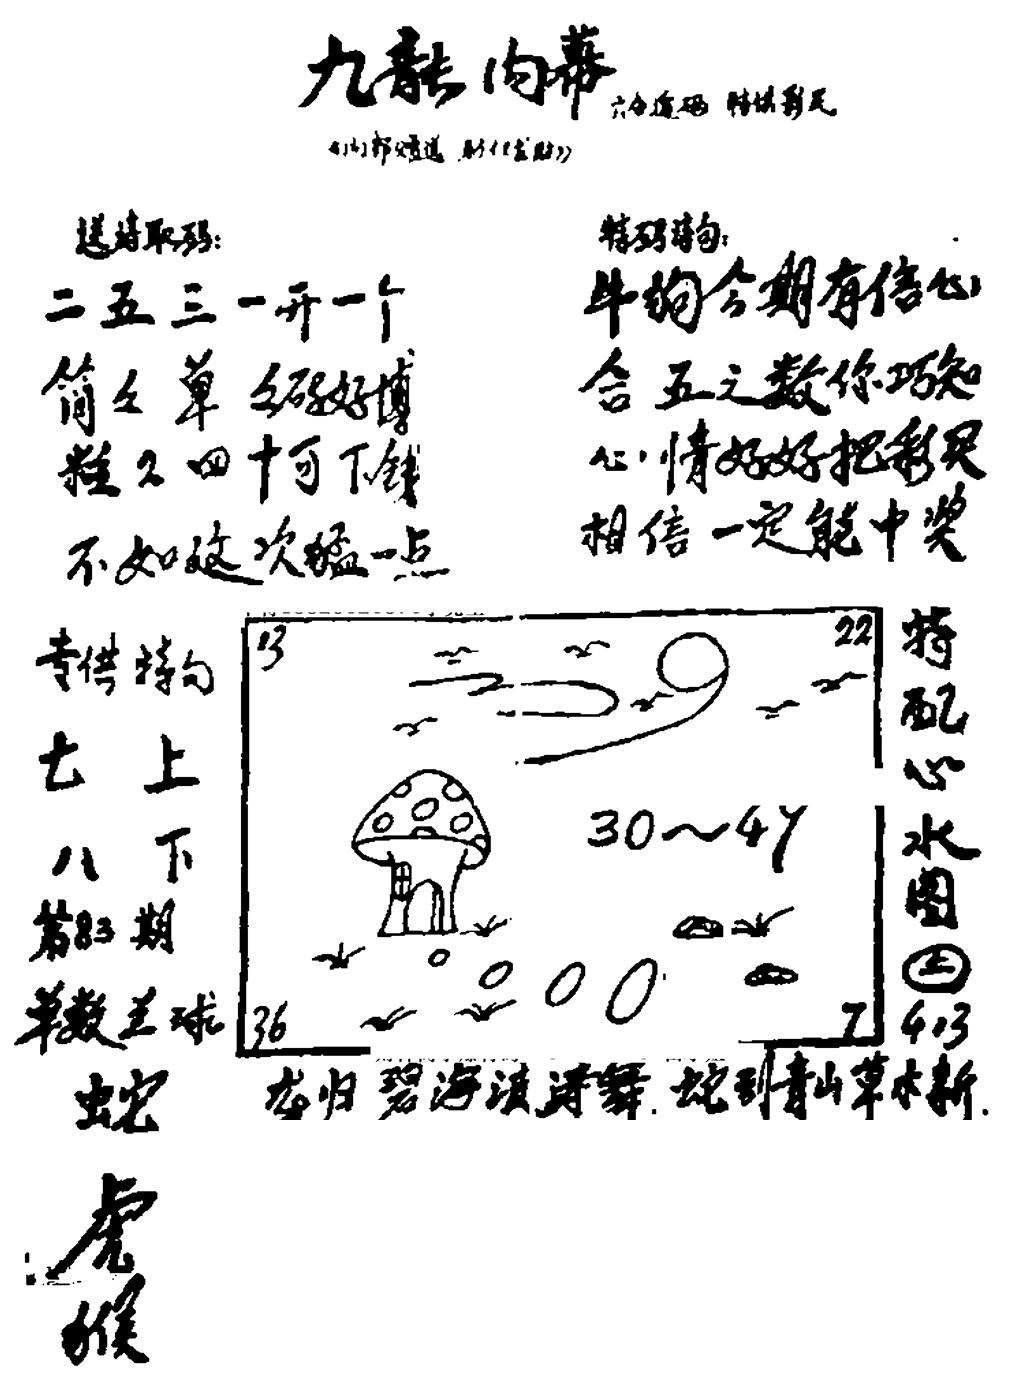 九龙内幕
六合追码 特供彩民
送特取码:
二五三一开一个
简么单么码好博
数又四十可下钱
不如这次猛一点
特码诗句:
牛狗今期有信心
合五之数你巧知
心情好好把彩民
相信一定能中奖
专供特句
七上
八下
第83期
单数兰球
蛇
虎
猴
13
22
30～47
36
7
特配心水图
上
4.13
龙归碧海波涛舞.蛇到青山草木新.